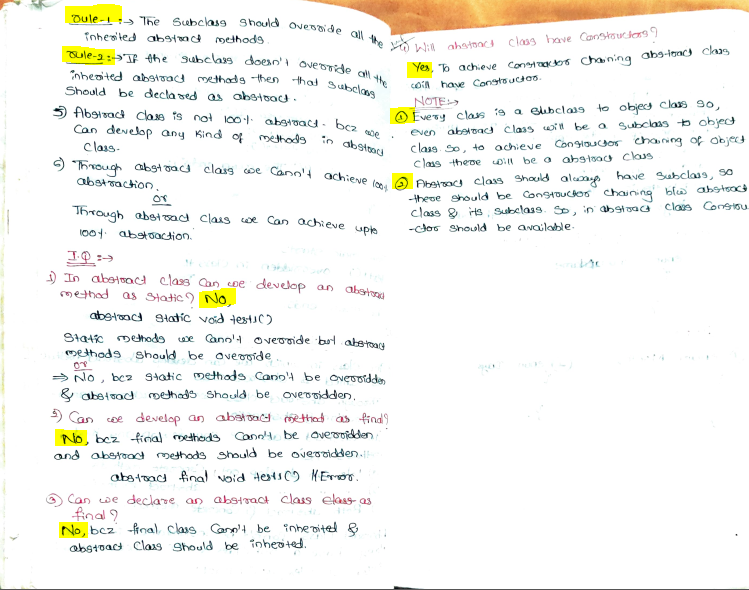 Rule-1 :-> The Subclass should override all the
inherited abstract methods.
Rule-2 :-> If the subclass doesn't override all the
inherited abstract methods then that subclass
should be declared as abstract.
5) Abstract class is not 100% abstract. bcz we
can develop any kind of methods in abstract
class.
6) Through abstract class we cann't achieve 100%
abstraction.
or
Through abstract class we can achieve upto
100% abstraction.
I.Q :->
1) In abstract class can we develop an abstract
method as static? No,
abstract static void test1()
Static methods we cann't override but abstract
methods should be override.
or
=> No, bcz static methods cann't be overridden
& abstract methods should be overridden.
2) Can we develop an abstract method as final?
No, bcz final methods cann't be overridden
and abstract methods should be overridden.
abstract final void test1() //Error.
③ Can we declare an abstract class class as
final?
No, bcz final class cann't be inherited &
abstract class should be inherited.
Will abstract class have constructors?
Yes, To achieve constructor chaining abstract class
will have constructor.
NOTE :->
① Every class is a subclass to object class so,
even abstract class will be a subclass to object
class. So, to achieve constructor chaining of object
class there will be a abstract class
② Abstract class should always have subclass, so
there should be constructor chaining b/w abstract
class & its subclass. So, in abstract class constru
-ctor should be available.